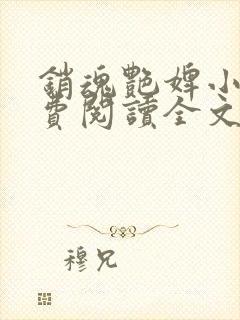 銷魂艷婢小
費閱讀全文
穆兄